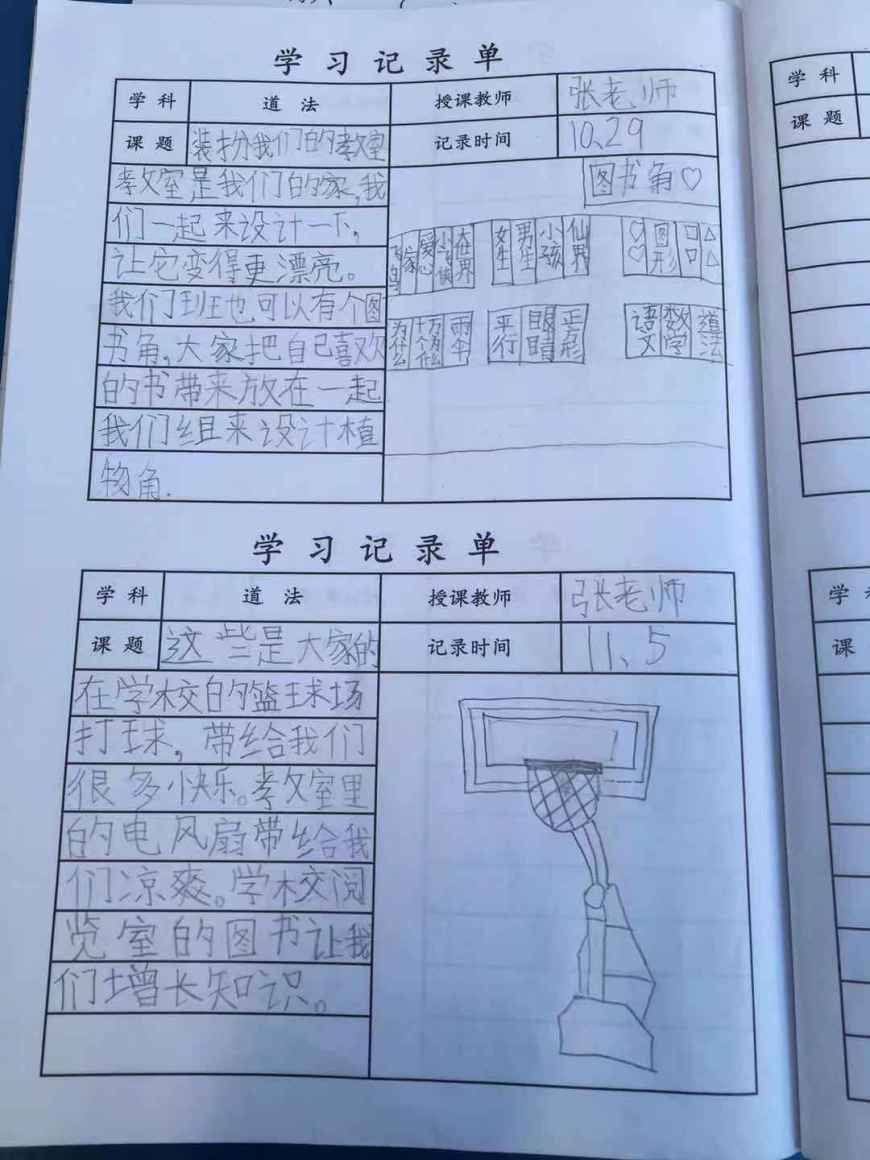 学习记录单
学科 道法 授课教师 张老师
课题 装扮我们的教室 记录时间 10.29
教室是我们的家,我
们一起来设计一下,
让它变得更漂亮。
我们班也可以有个图
书角,大家把自己喜欢
的书带来放在一起
我们组来设计植
物角.
图书角♡
爱心
女生 男生 小孩 仙界
图形
为什么 十万个为什么 雨伞
平行 眼睛 正形
语文 数学 道法
学习记录单
学科 道法 授课教师 张老师
课题 这些是大家的 记录时间 11、5
在学校的篮球场
打球,带给我们
很多快乐。教室里
的电风扇带给我
们凉爽。学校阅
览室的图书让我
们增长知识。
学科
课题
学
课